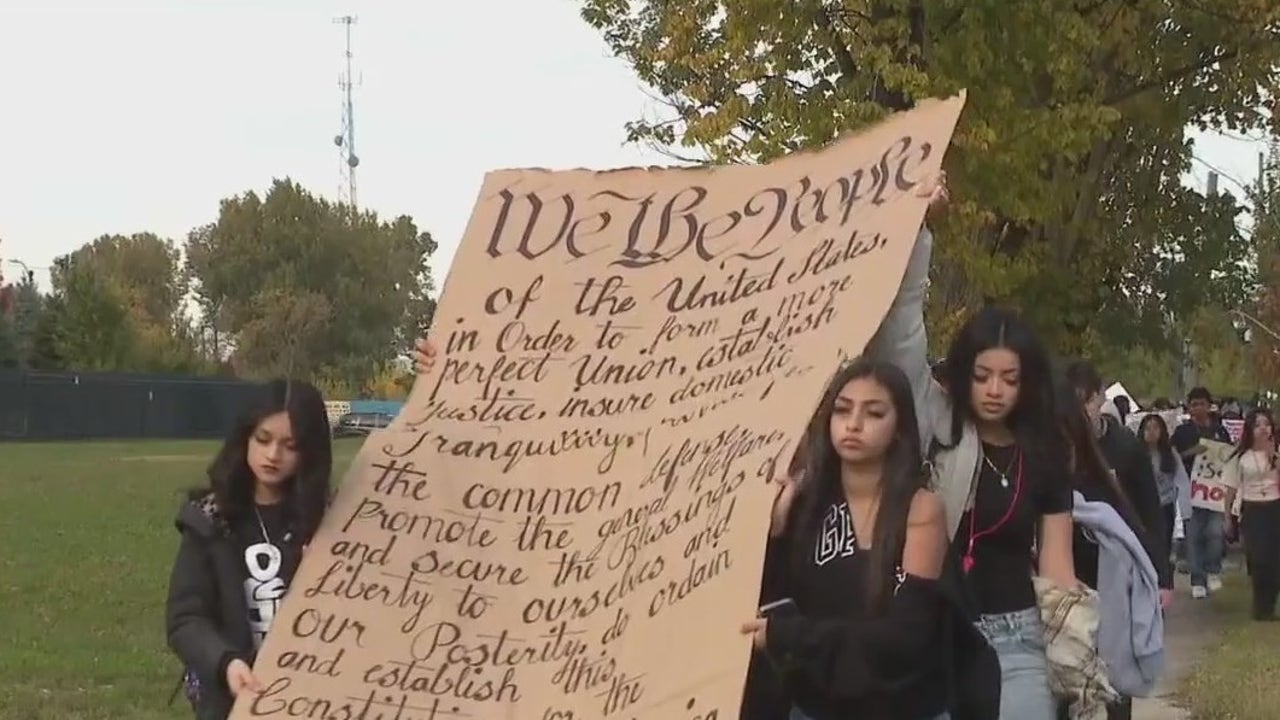 We The People
of the United States,
in Order to form a more
perfect Union, establish
Justice, insure domestic
Tranquility,
the common defense,
Promote the general Welfare,
and secure the Blessings of
Liberty to ourselves and
our Posterity, do ordain
and establish this
for the
GA
no